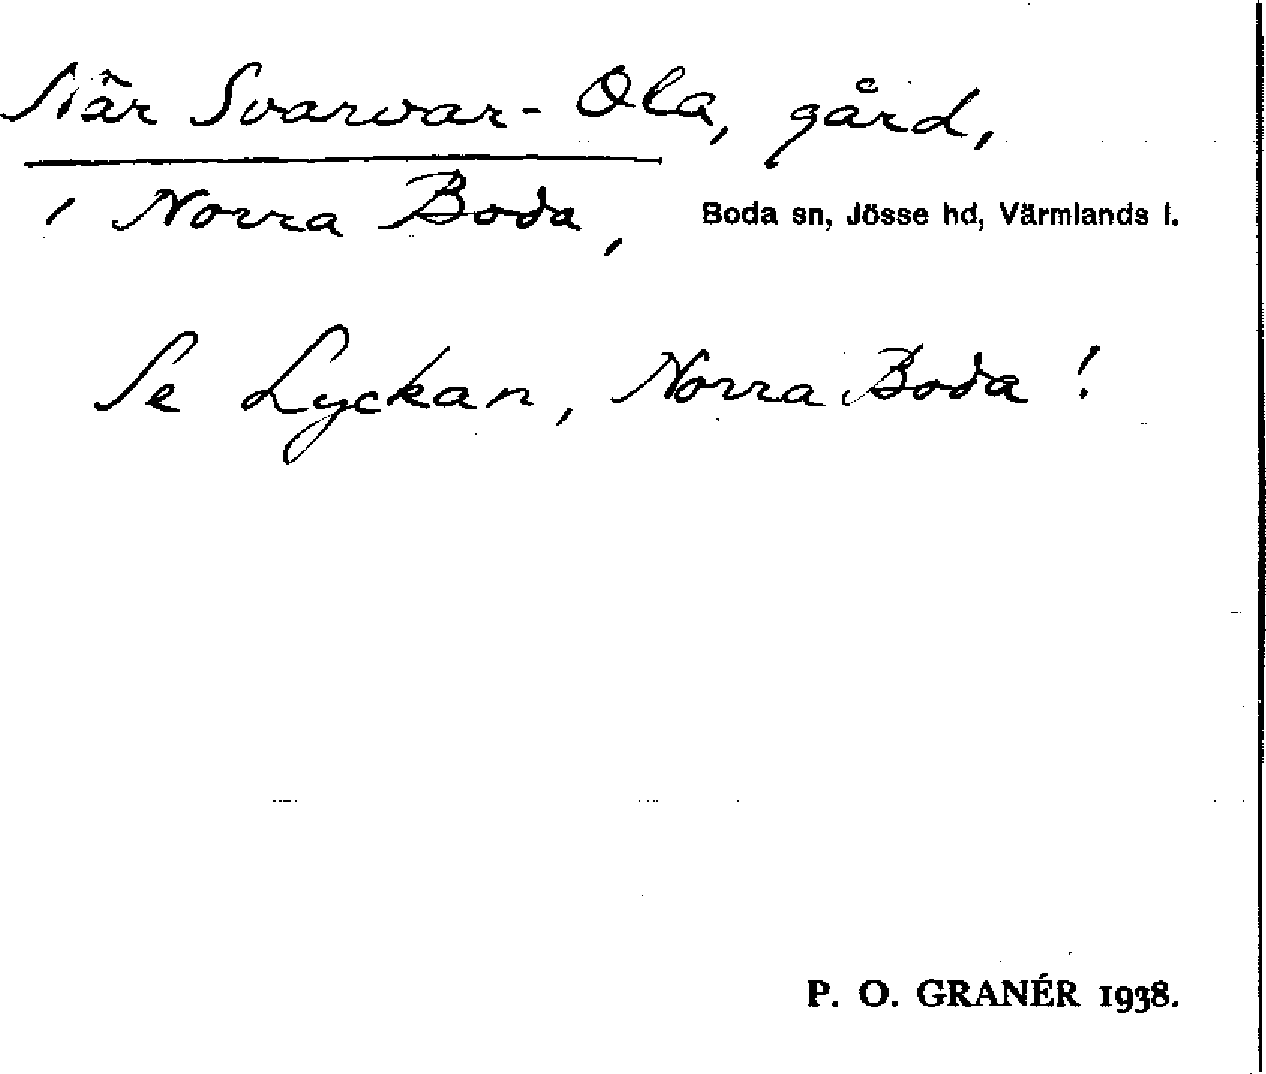 När Svarvar-Ola, gård,
i Norra Boda, Boda sn, Jösse hd, Värmlands l.
Se Lyckan, Norra Boda!
P. O. GRANÉR 1938.